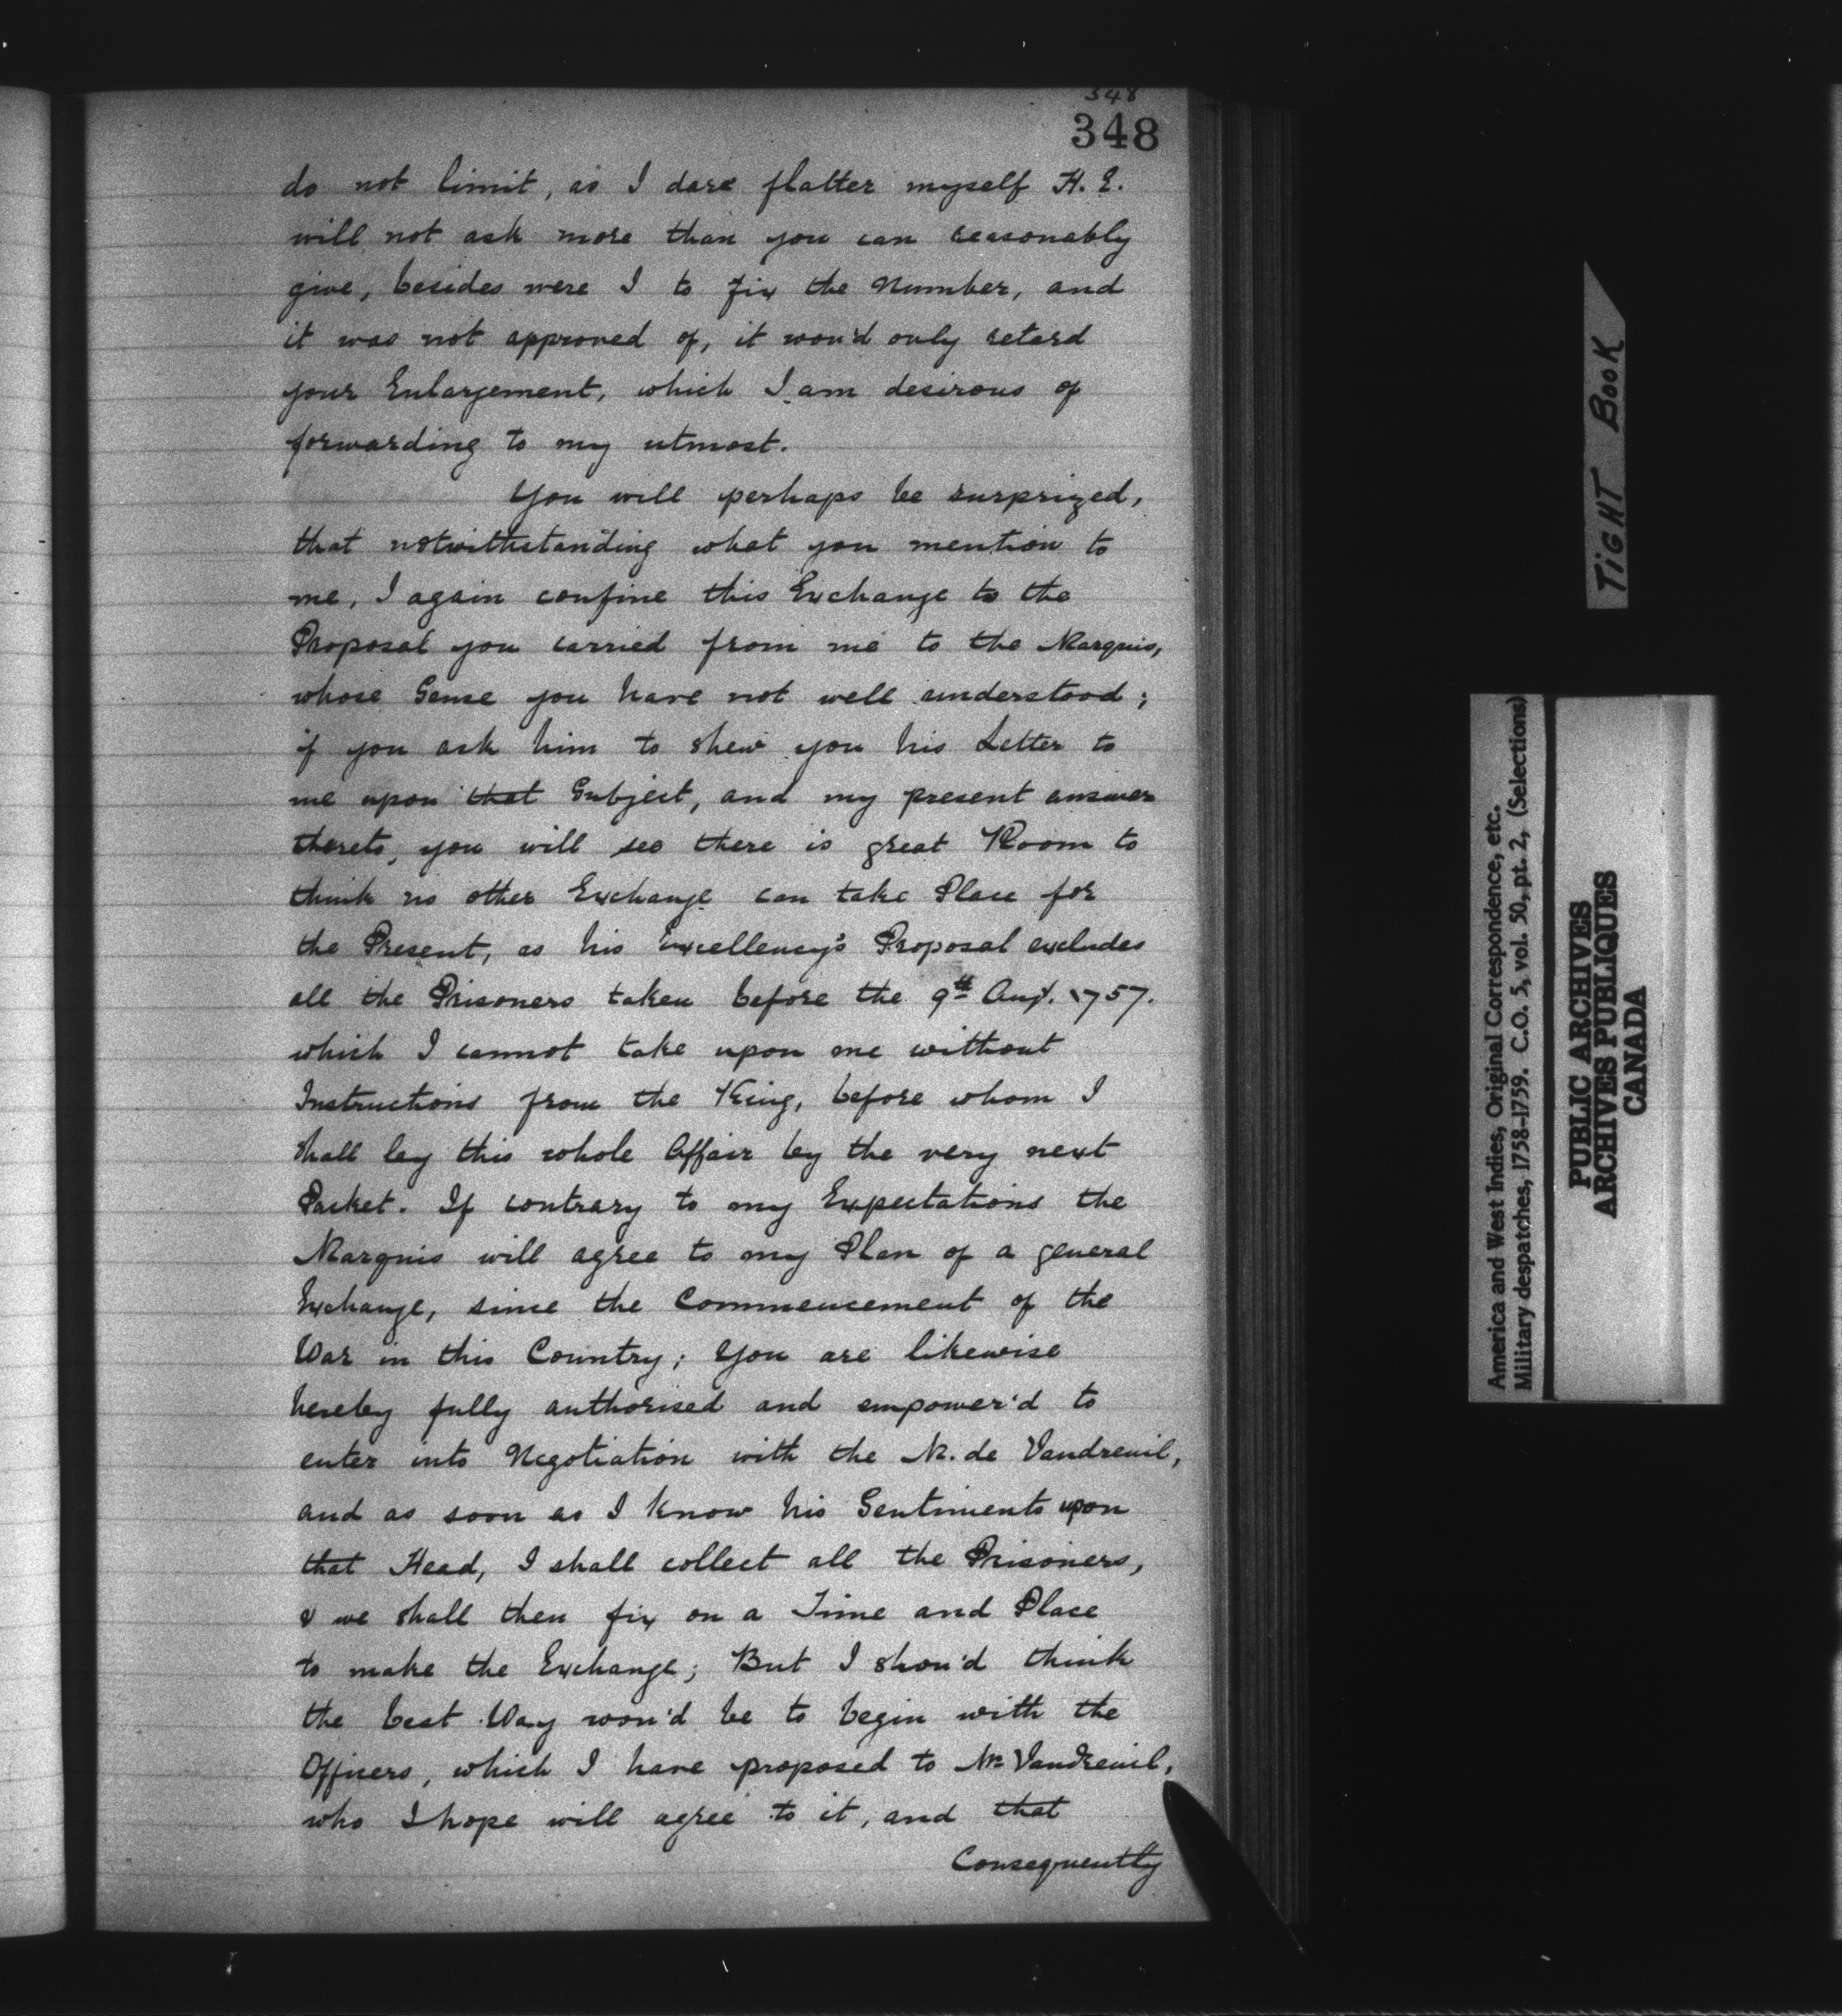 348
348
do not limit, as I dare flatter myself H. E.
will not ask more than you can reasonably
give, besides were I to fix the Number, and
it was not approved of, it wou'd only retard
your Enlargement, which I am desirous of
forwarding to my utmost.
You will perhaps be surprized,
that notwithstanding what you mention to
me, I again confine this Exchange to the
Proposal you carried from me to the Marquis,
whose Sense you have not well understood;
if you ask him to shew you his Letter to
me upon that Subject, and my present answer
thereto, you will see there is great Room to
think no other Exchange can take Place for
the Present, as his Excellency's Proposal excludes
all the Prisoners taken before the 9th Augt. 1757.
which I cannot take upon me without
Instructions from the King, before whom I
shall lay this whole Affair by the very next
Packet. If contrary to my Expectations the
Marquis will agree to my Plan of a general
Exchange, since the Commencement of the
War in this Country; You are likewise
hereby fully authorised and empower'd to
enter into Negotiation with the M. de Vaudreuil,
and as soon as I know his Sentiments upon
that Head, I shall collect all the Prisoners,
& we shall then fix on a Time and Place
to make the Exchange; But I shou'd think
the best Way wou'd be to begin with the
Officers, which I have proposed to Mr Vaudreuil,
who I hope will agree to it, and that
Consequently
TIGHT BOOK
America and West Indies, Original Correspondence, etc.
Military despatches, 1758-1759. C.O. 5, vol. 50, pt. 2, (Selections)
PUBLIC ARCHIVES
ARCHIVES PUBLIQUES
CANADA